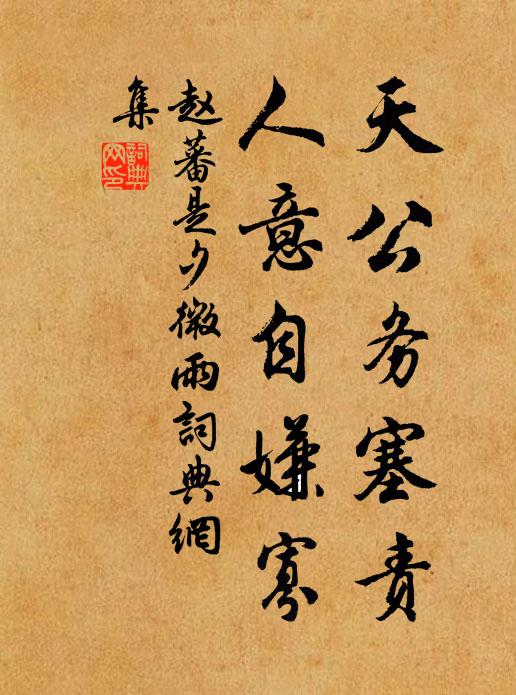 天公务塞责
人意自嫌寡
赵蕃是夕微雨詞典網
集
詞典
网印